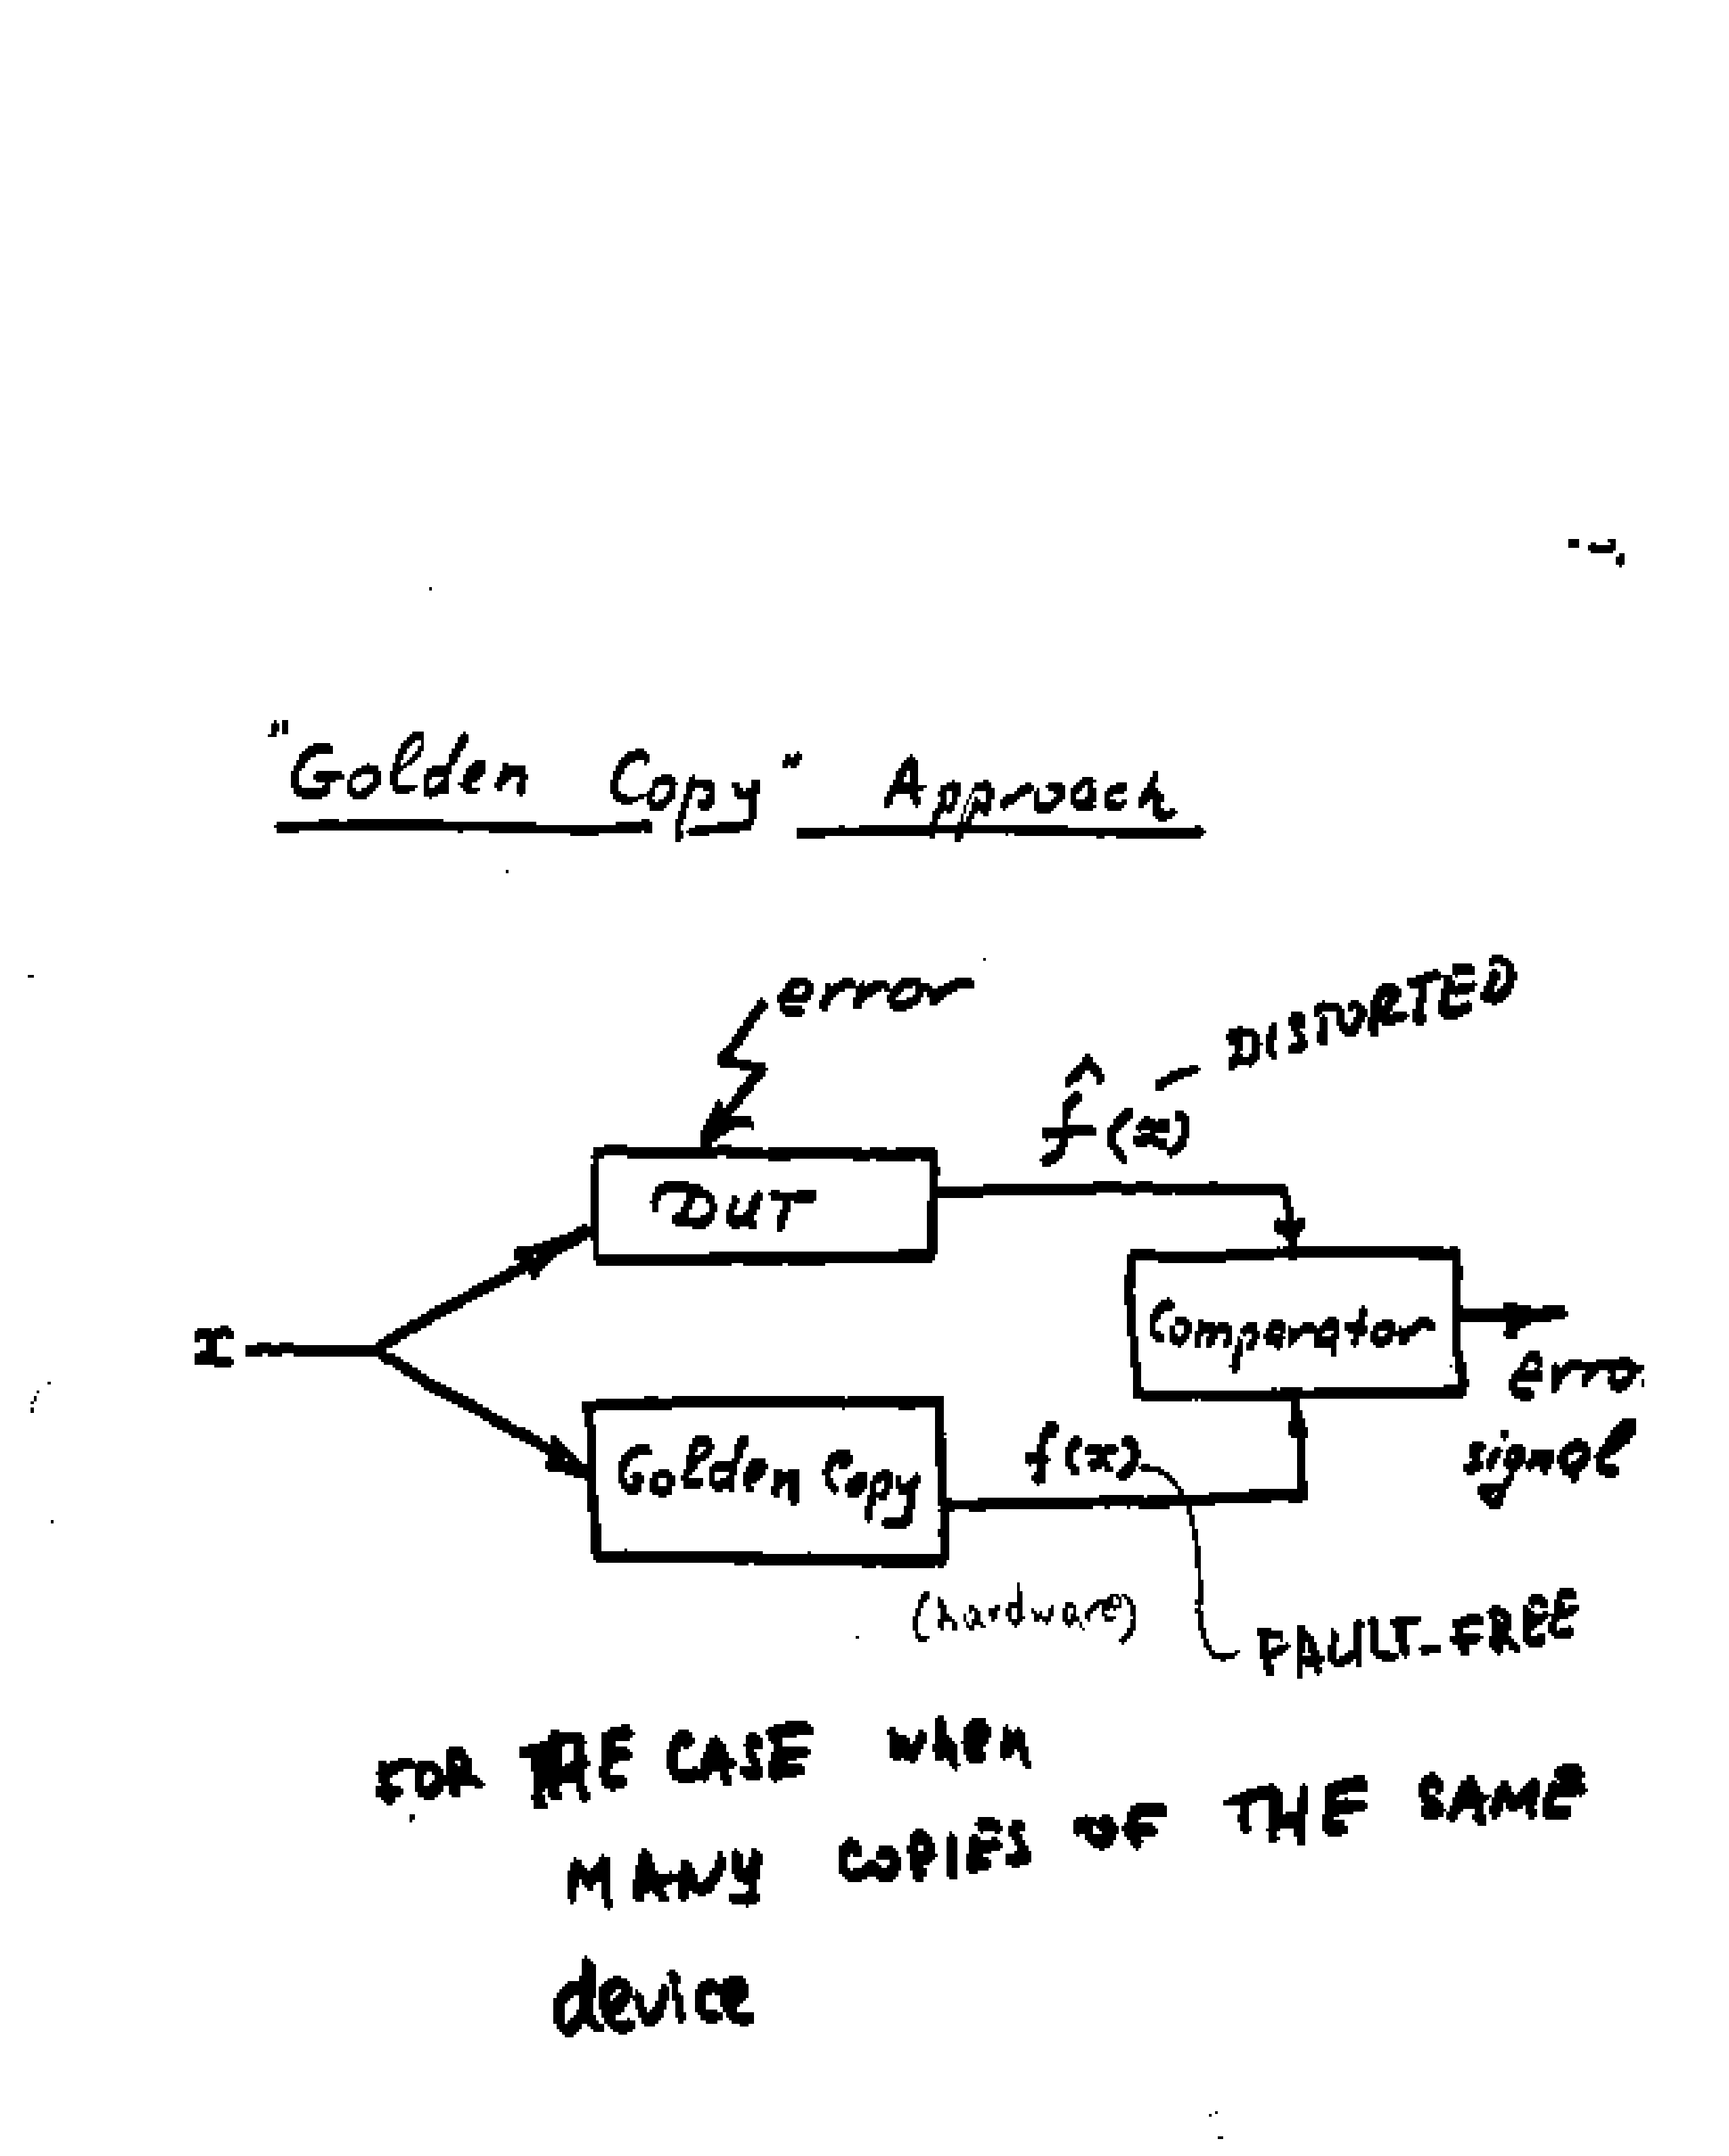 "Golden Copy" Approach
error
f̂(x) — DISTORTED
DUT
x
Comparator
erro
signal
Golden Copy
f(x)
(hardware)
FAULT-FREE
FOR THE CASE when
MANY COPIES OF THE SAME
device